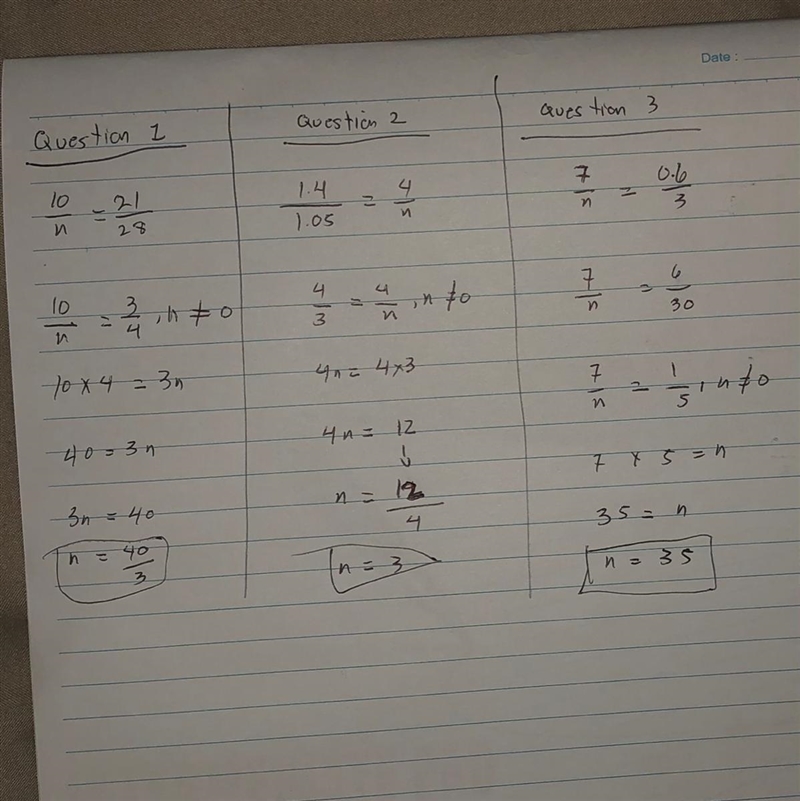 Date :
Question 1
10/n = 21/28
10/n = 3/4, n ≠ 0
10 x 4 = 3n
40 = 3n
3n = 40
n = 40/3
Question 2
1.4/1.05 = 4/n
4/3 = 4/n, n ≠ 0
4n = 4x3
4n = 12
↓
n = 12/4
n = 3
Question 3
7/n = 0.6/3
7/n = 6/30
7/n = 1/5, n ≠ 0
7 x 5 = n
35 = n
n = 35